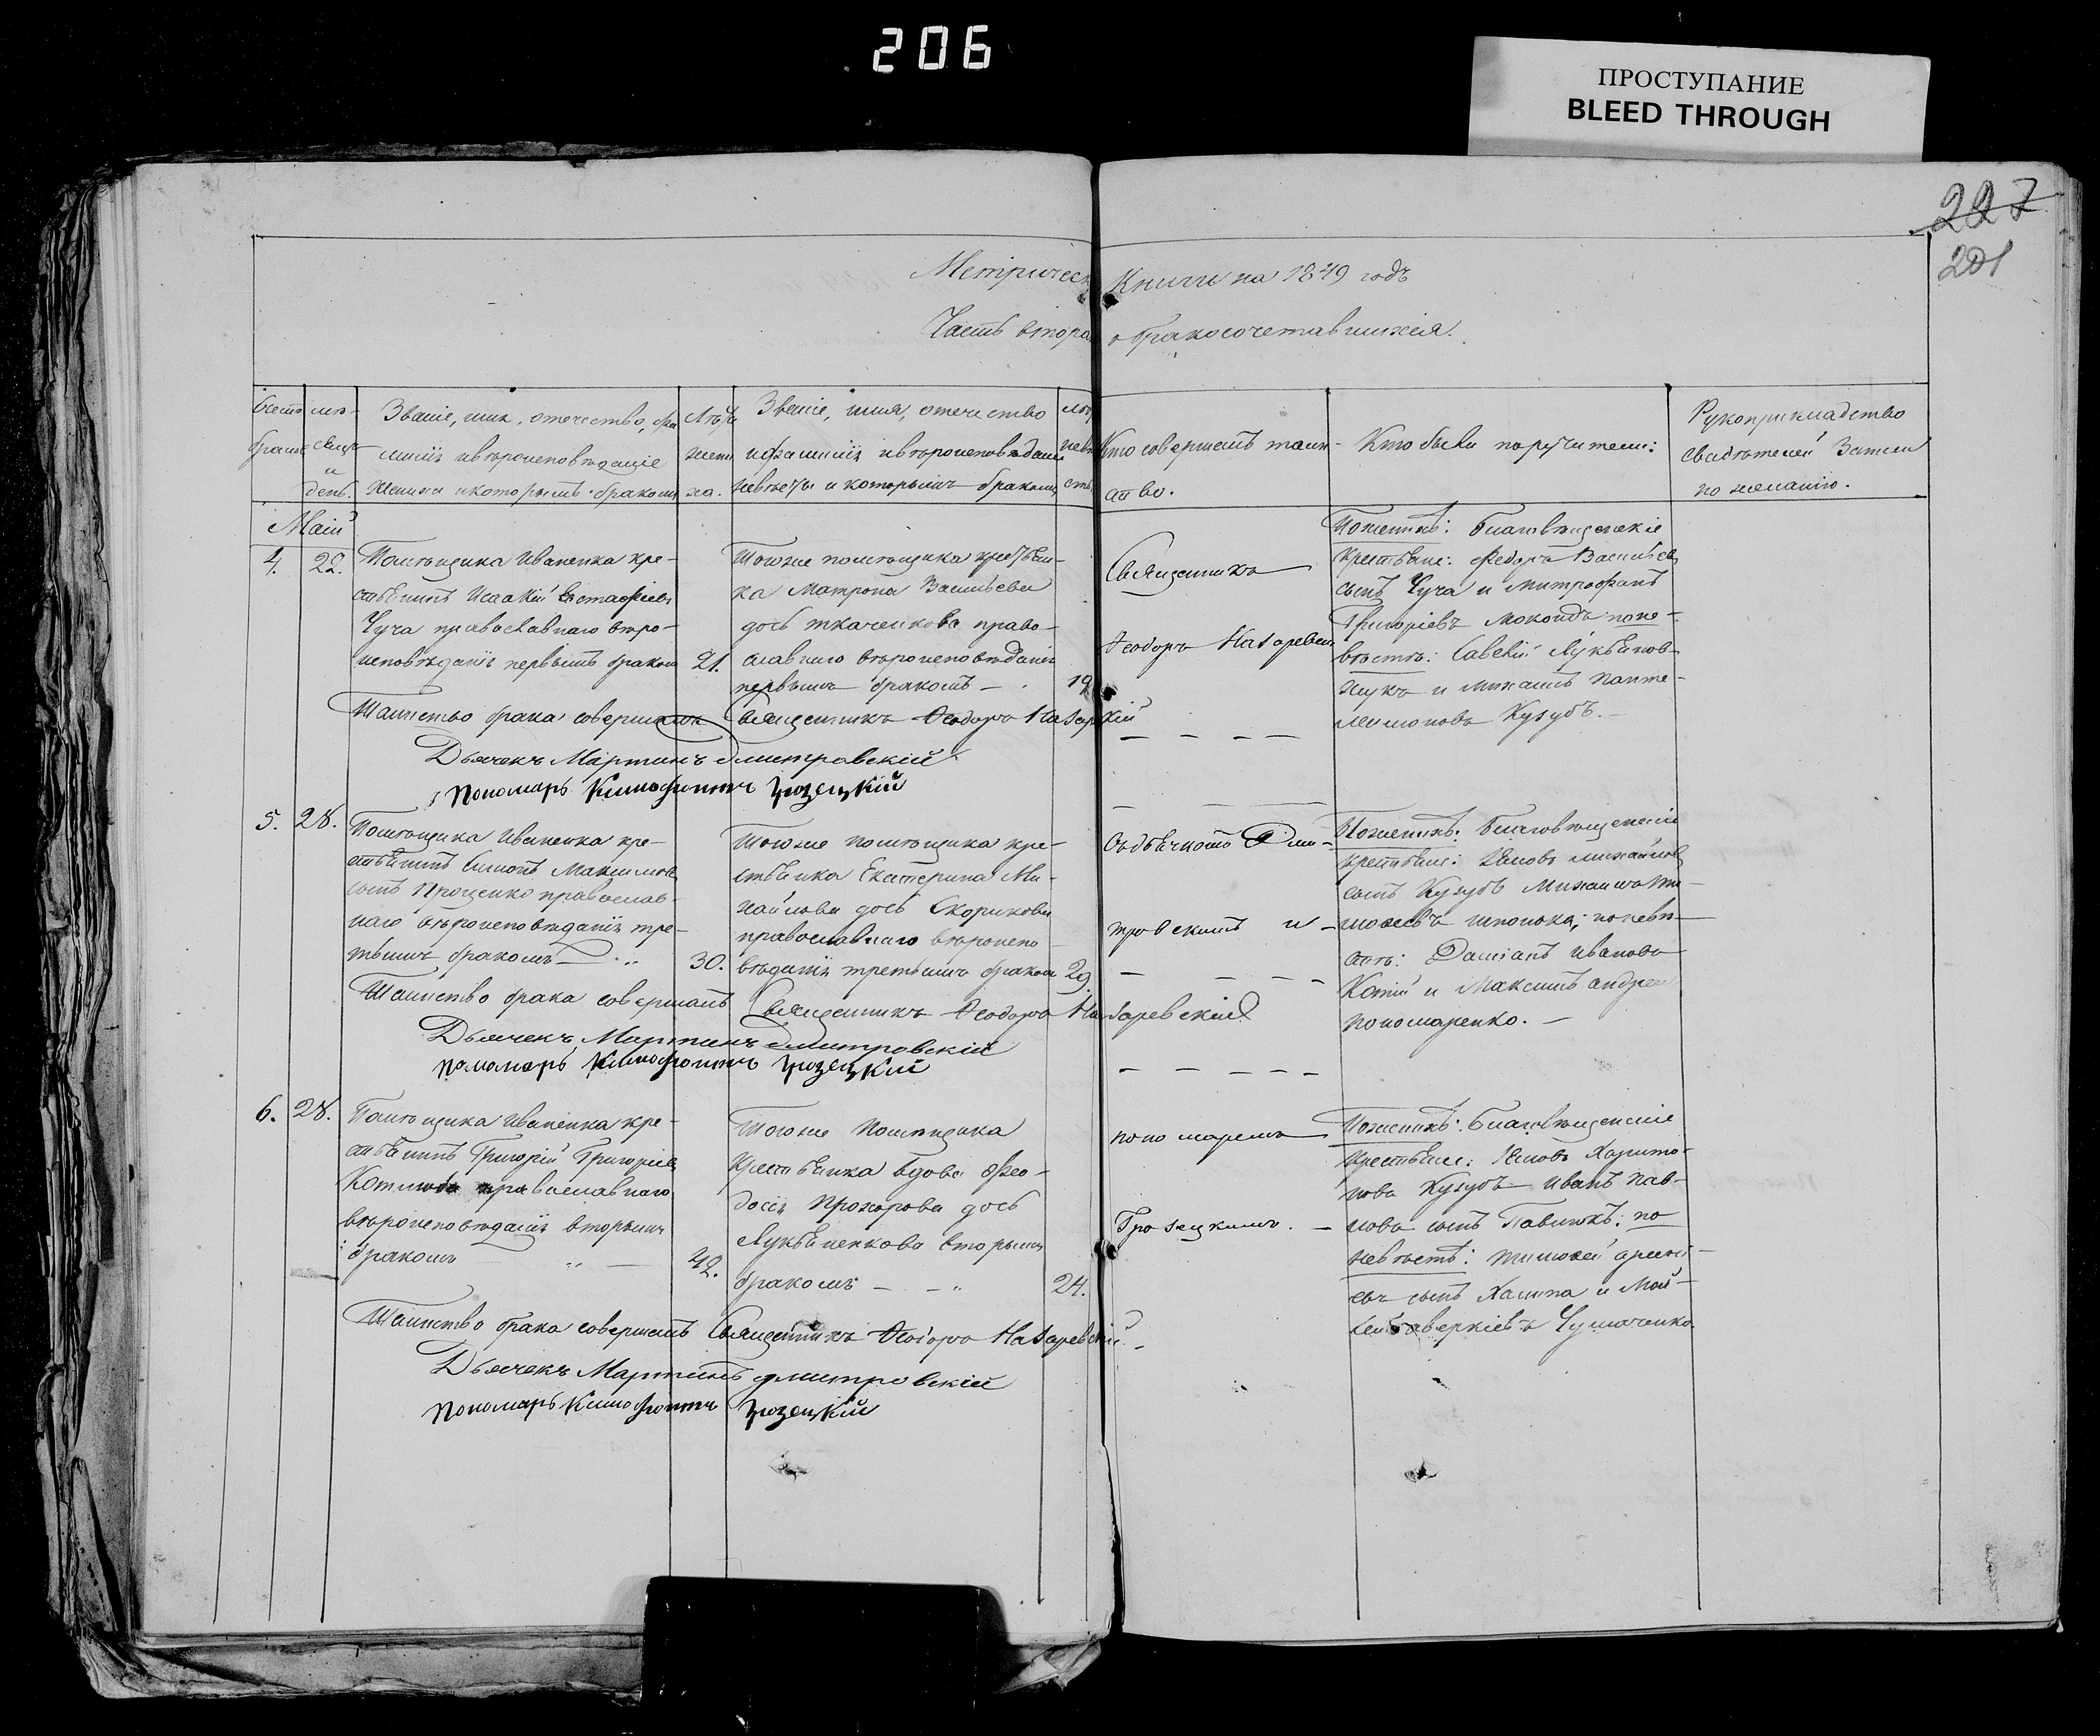 206
ПРОСТУПАНИЕ
BLEED THROUGH
227
201
Метрическ Книги на 1849 годъ
Часть втора о бракосочетавшихся.
Счетъ
браков
мѣ-
сяцъ
и
день.
Званіе, имя, отчество, фа
миліи и вѣроисповѣданіе
жениха и которымъ бракомъ
Лѣта
жени
ха.
Званіе, имя, отечество
и фамилія и вѣроисповѣданіе
невѣсты и которымъ бракомъ
лѣт
невѣ
сты
Кто совершалъ таин-
ство.
Кто были поручители:
Рукоприкладство
свидѣтелей записи
по желанію.
Маій
4. 22.
Помѣщика Иваненка кре-
стьянинъ Исаакій Евстафіевъ
Чуча православнаго вѣро-
исповѣданія первымъ бракомъ 21.
Тогоже помѣщика крестьян-
ка Матрона Васильева
дочь Ткаченкова право-
славнаго вѣроисповѣданія
первымъ бракомъ — 19
Священникъ
Ѳеодоръ Назаревскій
По женихѣ: Благовѣщенскіе
крестьяне: Федоръ Васильевъ
сынъ Чуча и Митрофанъ
Григоріевъ Мокоидъ по не-
вѣстѣ: Савелій Лукьянов-
Жукъ и Михаилъ Панте-
леимоновъ Кузубъ. —
Таинство брака совершалъ Священникъ Ѳеодоръ Назар кій
Дьячекъ Мартинъ Дмитровскій
Пономарь Ксинофонтъ Грозецкій
5. 28.
Помѣщика Иваненка кре-
стьянинъ Симонъ Максимовъ
сынъ Проценко православ-
наго вѣроисповѣданія тре-
тьимъ бракомъ — 30.
Тогоже помѣщика кре-
стьянка Екатерина Ми-
хайлова дочь Скорикова
православнаго вѣроиспо-
вѣданія третьимъ бракомъ 29.
Съ дьячкомъ Дми-
тровскимъ и —
По женихѣ: Благовѣщенскіе
крестьяне: Яковъ Михайловъ
сынъ Кузубъ Михаилъ Ти-
моѳеевъ Шпонька; по невѣ-
стѣ: Даміанъ Ивановъ
Котій и Максимъ Андреев
Пономаренко. —
Таинство брака совершалъ Священникъ Ѳеодоръ Назаревскій
Дьячекъ Мартинъ Дмитровскій
Пономарь Ксинофонтъ Грозецкій
6. 28.
Помѣщика Иваненка кре-
стьянинъ Григорій Григоріевъ
православнаго
вѣроисповѣданія вторымъ
бракомъ — 42.
Тогоже Помѣщика
Крестьянка вдова Фео-
досія Прохорова дочь
Лукьяненкова вторымъ
бракомъ — — 24.
пономаремъ
Грозецкимъ. —
По женихѣ: Благовѣщенскіе
крестьяне: Яковъ Харито-
новъ Кузубъ Иванъ Пав-
ловъ сынъ Павликъ; по
невѣстѣ: Тимоѳей
евъ сынъ Халипа и Мой-
сей Аверкіевъ Чумаченко
Таинство брака совершалъ Священникъ Ѳеодоръ Назаревскій. —
Дьячекъ Мартинъ Дмитровскій
Пономарь Ксинофонтъ Грозецкій